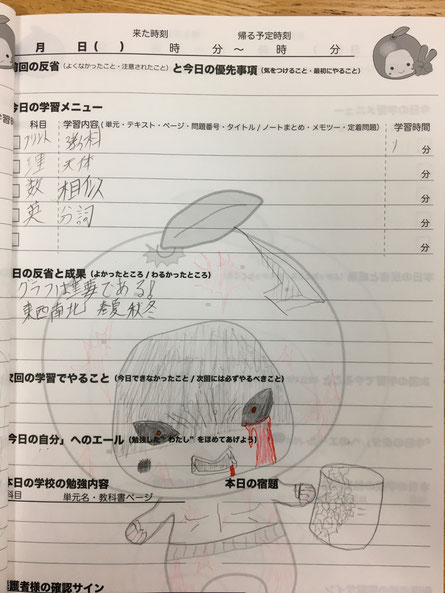 来た時刻 帰る予定時刻
月 日( ) 時 分〜 時 分
前回の反省(よくなかったこと・注意されたこと)と今日の優先事項(気をつけること・最初にやること)
今日の学習メニュー
科目 学習内容(単元・テキスト・ページ・問題番号・タイトル/ノートまとめ・メモツー・定着問題) 学習時間
プリント 3教科 分
理 天体 分
数 相似 分
英 分詞 分
分
日の反省と成果(よかったところ/わかるところ)
グラフは重要である!
東西南北 春夏秋冬
次回の学習でやること(今日できなかったこと/次回には必ずやるべきこと)
今日の自分」へのエール(勉強した"わたし"をほめてあげよう)
本日の学校の勉強内容 本日の宿題
科目 単元名・教科書ページ
護者様の確認サイン